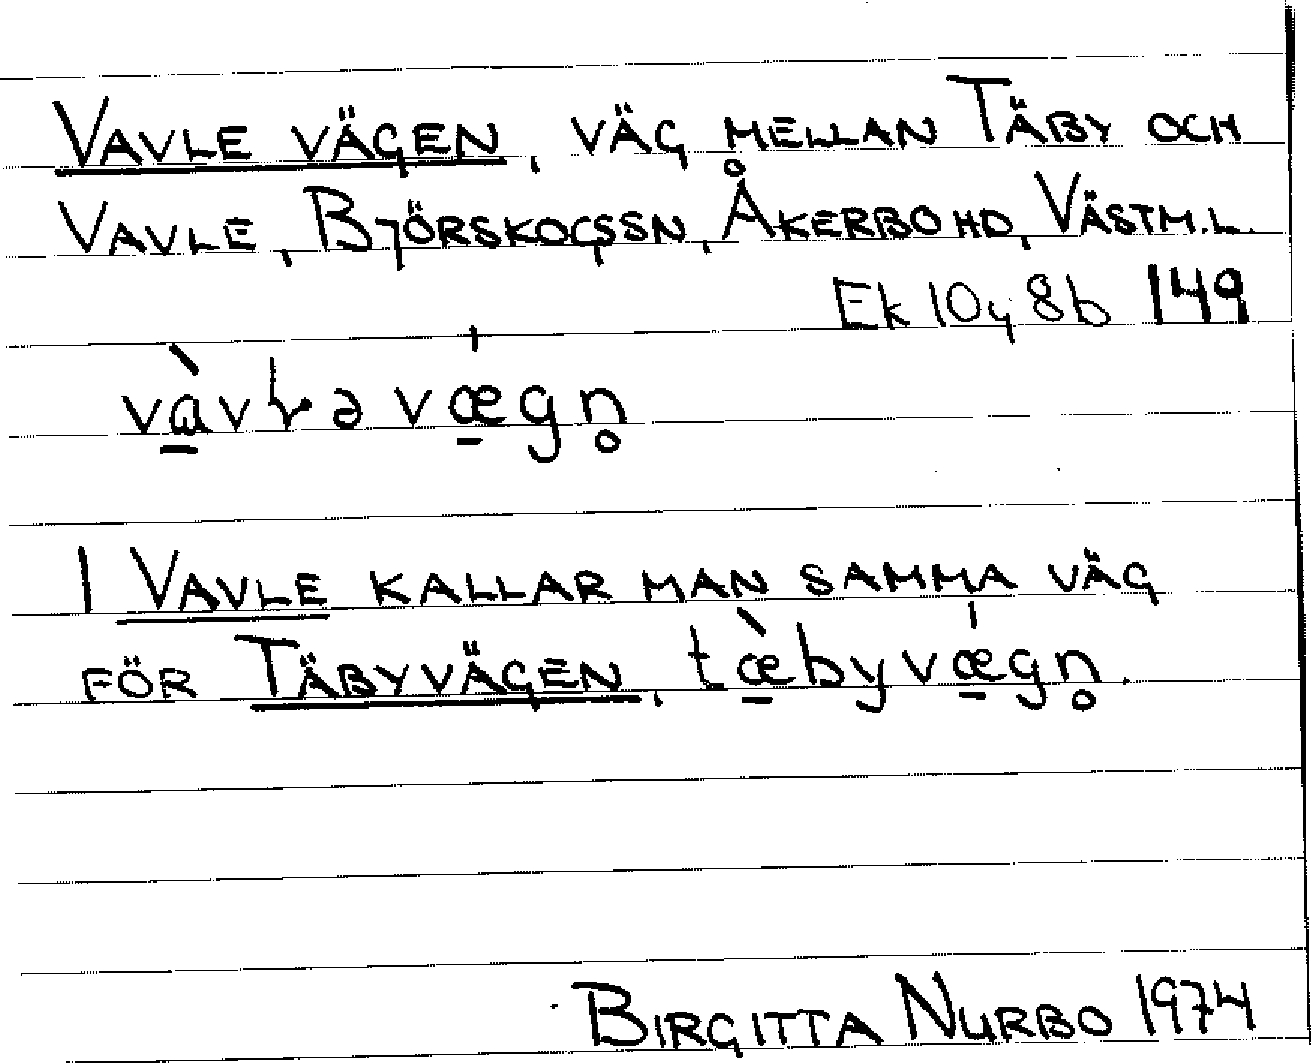 VAVLE VÄGEN, VÄG MELLAN TÄBY OCH
VAVLE, BJÖRSKOGSSN, ÅKERBO HD, VÄSTM.L.
Ek 10g 8b 149
vàvɽəvægn̥
I VAVLE KALLAR MAN SAMMA VÄG
FÖR TÄBYVÄGEN, tæ̀byvægn̥.
BIRGITTA NURBO 1974